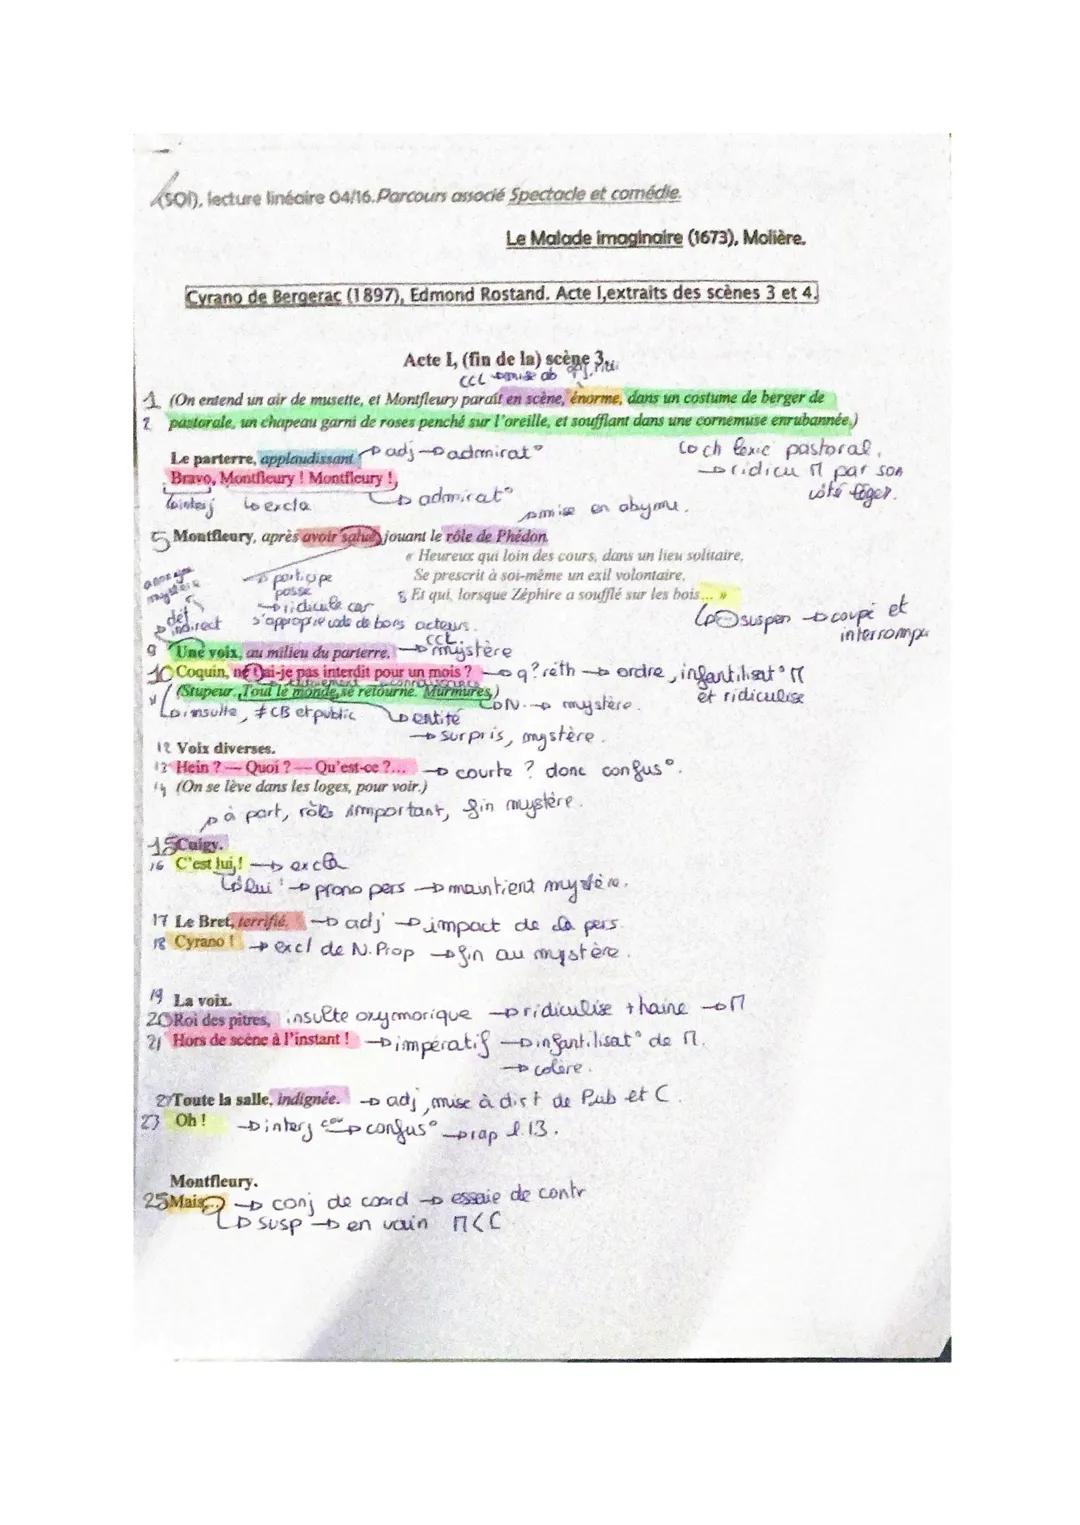 (SOI), lecture linéaire 04/16. Parcours associé Spectacle et comédie.
Le Malade imaginaire (1673), Molière.
Cyrano de Bergerac (1897), Edmond Rostand. Acte I, extraits des scènes 3 et 4.
Acte I, (fin de la) scène 3.
CCL → mise ab
1 (On entend un air de musette, et Montfleury paraît en scène, énorme, dans un costume de berger de
2 pastorale, un chapeau garni de roses penché sur l'oreille, et soufflant dans une cornemuse enrubannée.)
Le parterre, applaudissant → adj → admirat°
↳ ch lexic pastoral.
Bravo, Montfleury ! Montfleury !
→ ridicu M par son
côté léger.
↳ interj ↳ excla ↳ admirat°
→ mise en abyme.
5 Montfleury, après avoir salué, jouant le rôle de Phédon.
« Heureux qui loin des cours, dans un lieu solitaire,
→ participe
passé
Se prescrit à soi-même un exil volontaire,
→ ridicule car
8 Et qui, lorsque Zéphire a soufflé sur les bois... »
s'approprie code de bons acteurs.
↳ suspen → coupé et
interrompu
mystère
→ dét
indirect
CCL
9 Une voix, au milieu du parterre. → mystère
10 Coquin, ne t'ai-je pas interdit pour un mois ? → q? réth → ordre, infantilisat° M
et ridiculise
(Stupeur. Tout le monde se retourne. Murmures.)
↳ insulte, ≠ CB et public ↳ entité
↳ N. → mystère.
→ surpris, mystère.
12 Voix diverses.
13 Hein ? — Quoi ? — Qu'est-ce ?... → courte ? donc confus°.
14 (On se lève dans les loges, pour voir.)
→ à part, rôle important, fin mystère.
15 Cuigy.
16 C'est lui ! → excla
↳ lui → prono pers → maintient mystère.
17 Le Bret, terrifié. → adj → impact de la pers.
18 Cyrano ! → excl de N. Prop → fin au mystère.
19 La voix.
20 Roi des pitres, insulte oxymorique → ridiculise + haine → M
21 Hors de scène à l'instant ! → impératif → infantilisat° de M.
→ colère.
22 Toute la salle, indignée. → adj, mise à dist de Pub et C.
23 Oh ! → interj → confus° → rap l.13.
Montfleury.
25 Mais... → conj de coord → essaie de contr
↳ susp → en vain M < C